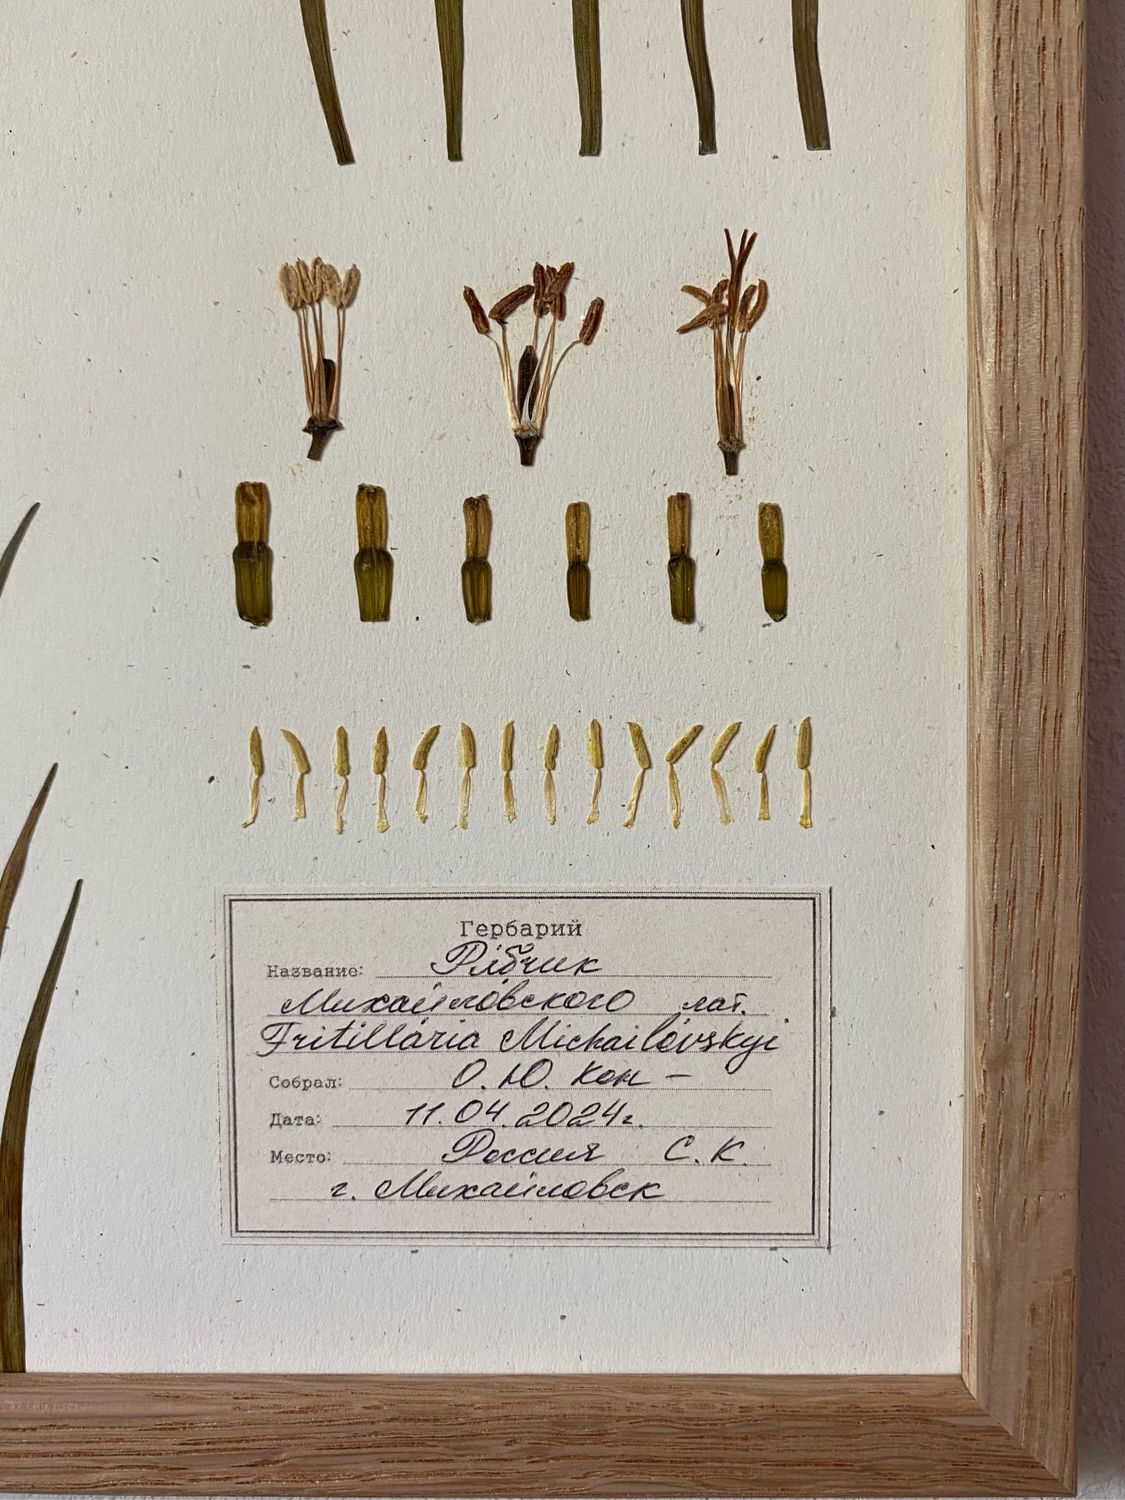 Гербарий
Название: Рябчик
Михайловского лат.
Fritillária Michailóvskyi
Собрал: О. Ю. Кон -
Дата: 11.04.2024г.
Место: Россия С. К.
г. Михайловск